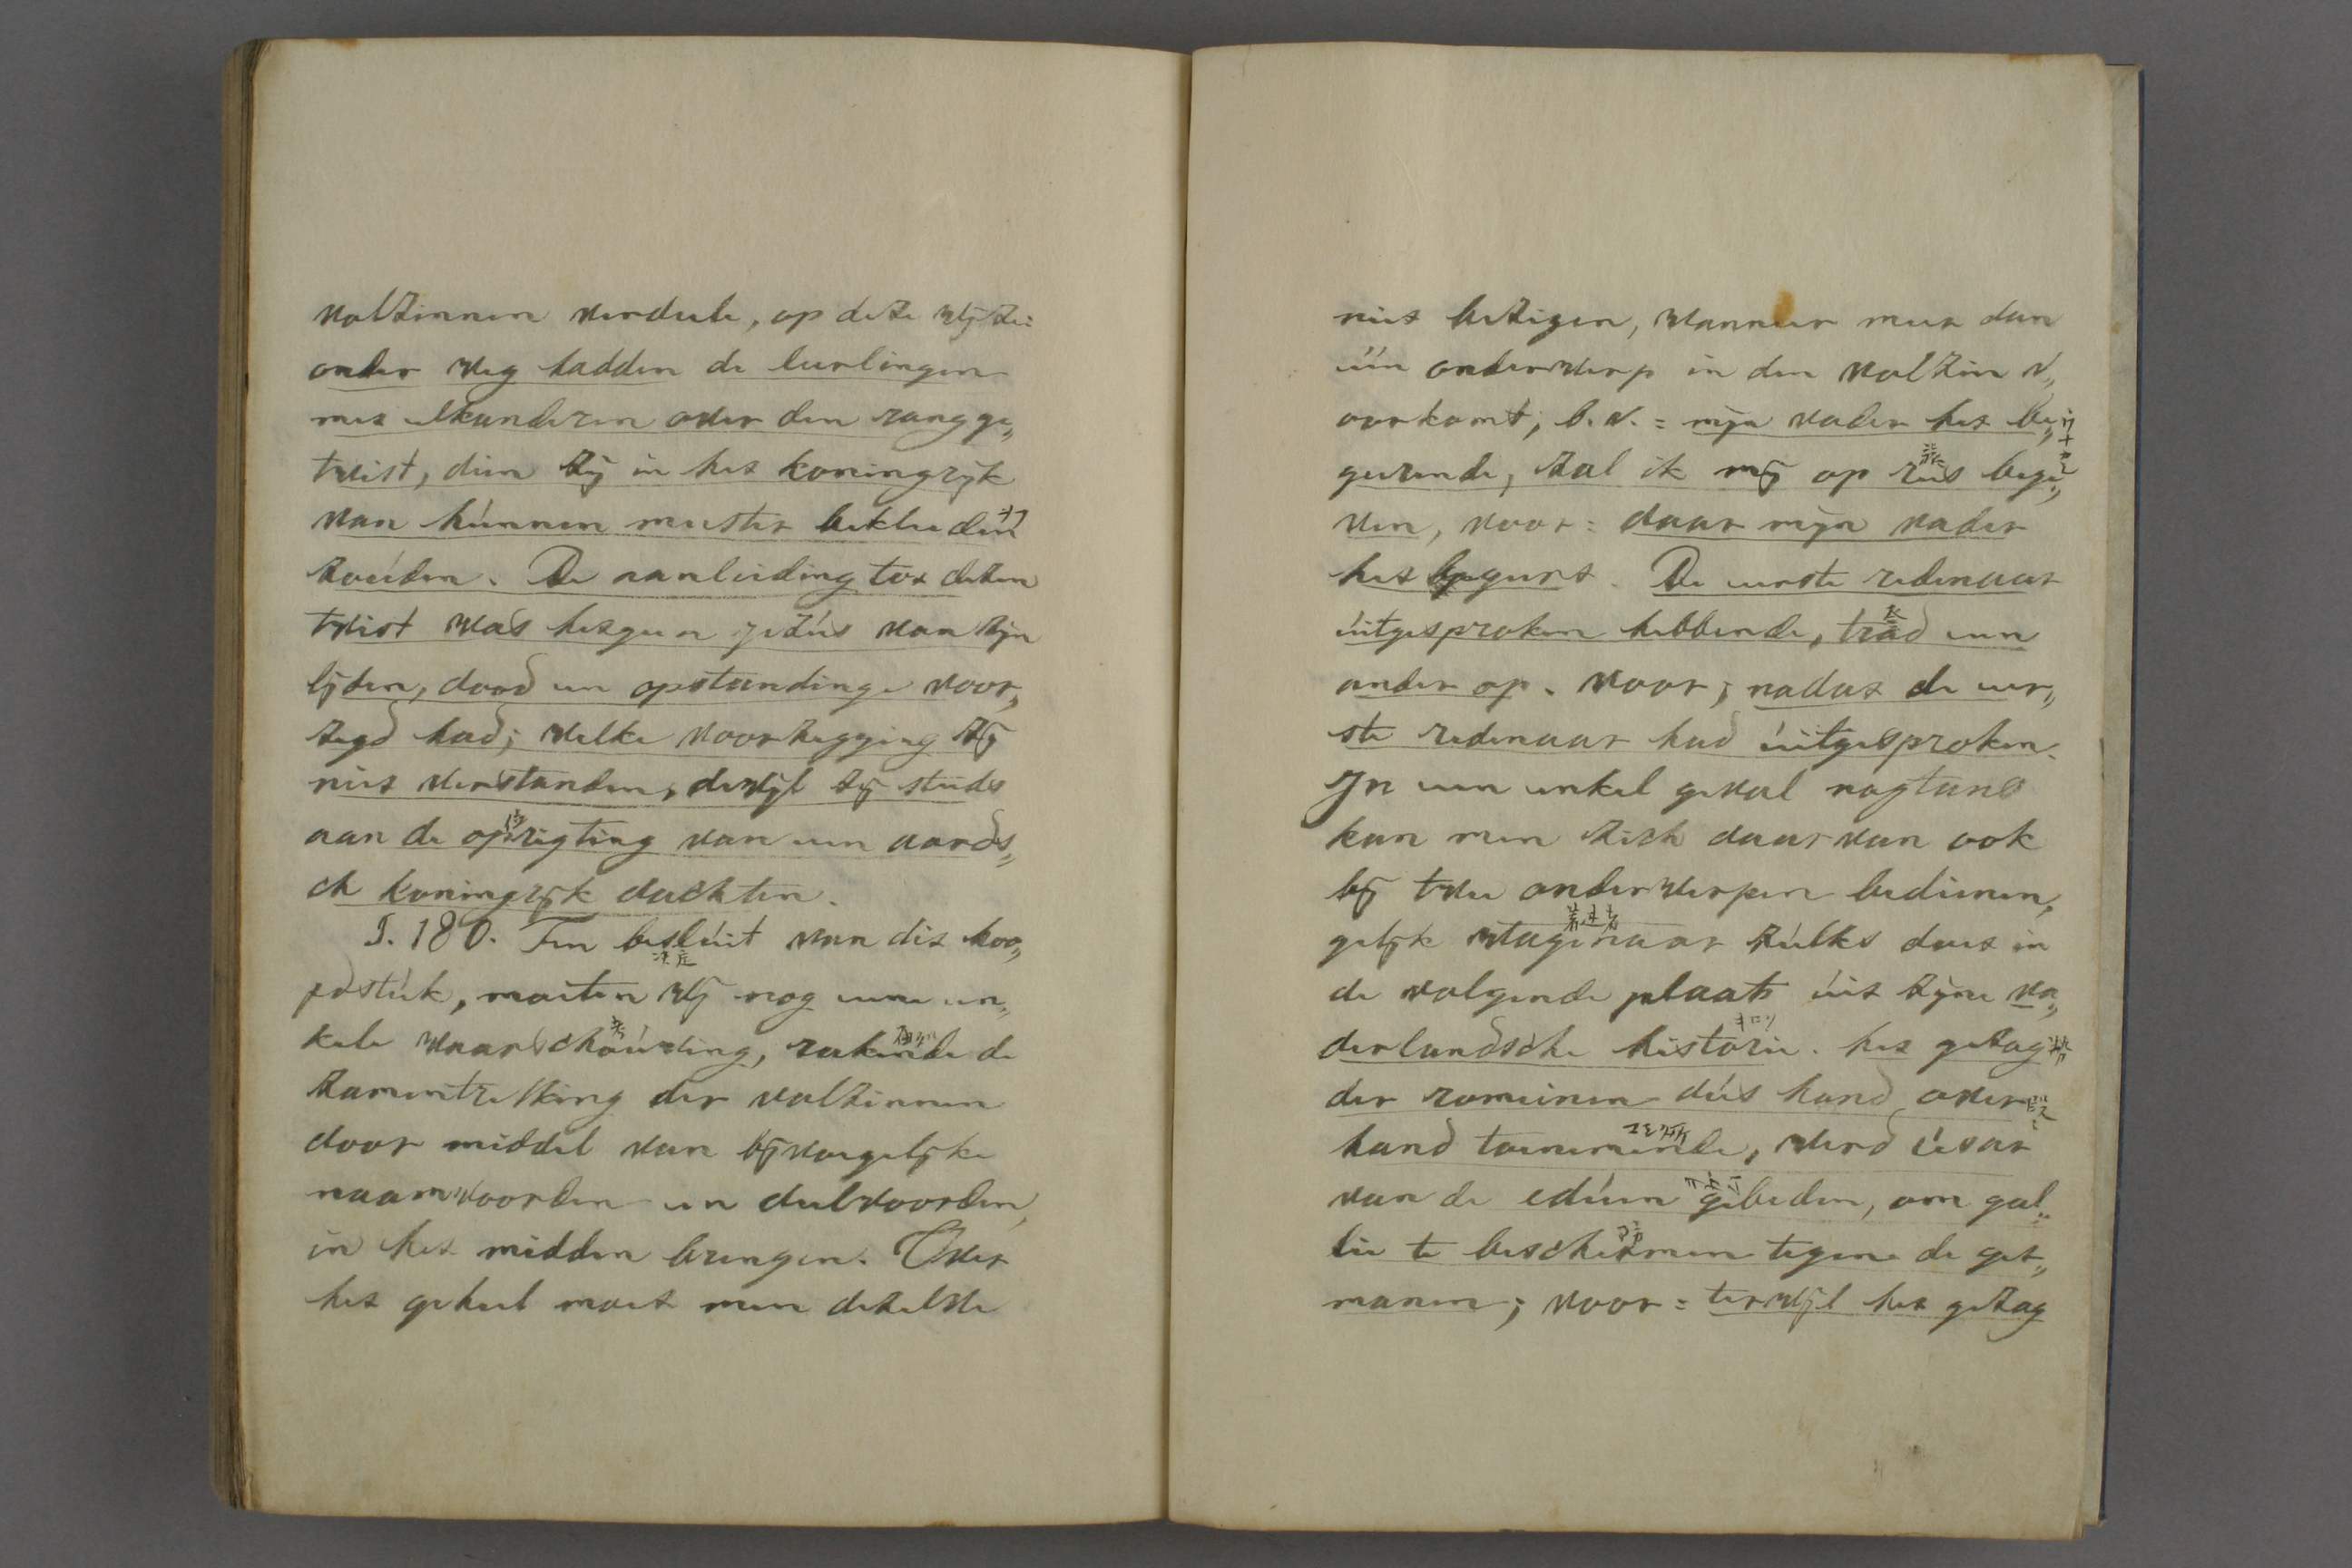 volzinnen verdeele, op deze wijze:
onder weg hadden de leerlingen
met elkanderen over den rang ge„
twist, dien zij in het koningrijk
van húnnen meester bekleeden
zoúden. De aanleiding tot dezen
twist was hetgeen jezús van zijn
lijden, dood en opstanding voor„
zegd had; welke voorzegging zij
niet verstanden, dewijl zij steeds
aan de oprigting van een aards„
ch koningrijk dachten.
§. 180. Ten beslúit van dit hoo„
決定
fdstúk, moeten wij nog eene en„
kele waarschoúwing, rakende de
zamentrekking der volzinnen
door middel van bijvoegelijke
naamwoorden en deelwoorden,
in het midden brengen. Over
het geheel moet men dezelve
niet bezigen, wanneer meer dan
één onderwerp in den volzin v„
oorkomt; b. v. = mijn vader het be„
geerende, zal ik mij op reis bege„
ven, voor = daar mijn vader
het begeert. De eerste redenaar
úitgesproken hebbende, trad een
ander op. voor; nadat de eer„
ste redenaar had úitgesproken.
In een enkel geval nogtans
kan men zich daarvan ook
bij twee onderwerpen bedienen,
gelijk wagenaar zúlks doet in
de volgende plaats úit zijne va„
derlandsche historie. het gezag
der romeinen dús hand over
hand toenemende, werd césar
van de edúen gebeden, om gal„
lie te beschermen tegen de ger„
manen; voor = terwijl het gezag